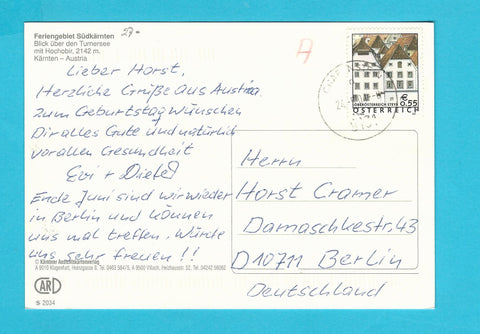 Feriengebiet Südkärnten
Blick über den Turnersee
mit Hochobir, 2142 m.
Kärnten – Austria
27.-
Lieber Horst,
Herzliche Grüße aus Austria
zum Geburtstag wünschen
Dir alles Gute und natürlich
vor allen Gesundheit
Evi + Dieter
Ende Juni sind wir wieder
in Berlin und können
uns mal treffen. Würde
uns sehr freuen!!
© Kärntner Ansichtskartenverlag
A 9010 Klagenfurt,
S 2034
€ 0.55
OBERÖSTERREICH STEYR
ÖSTERREICH
Herrn
Horst Cramer
Damaschkestr. 43
D 10711 Berlin
Deutschland